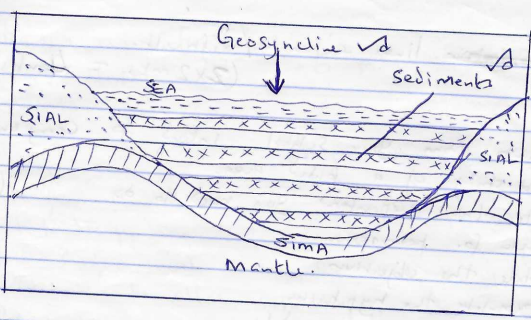 Geosyncline √d
√d
SEA
Sediments
SIAL
SIAL
SIMA
Mantle.